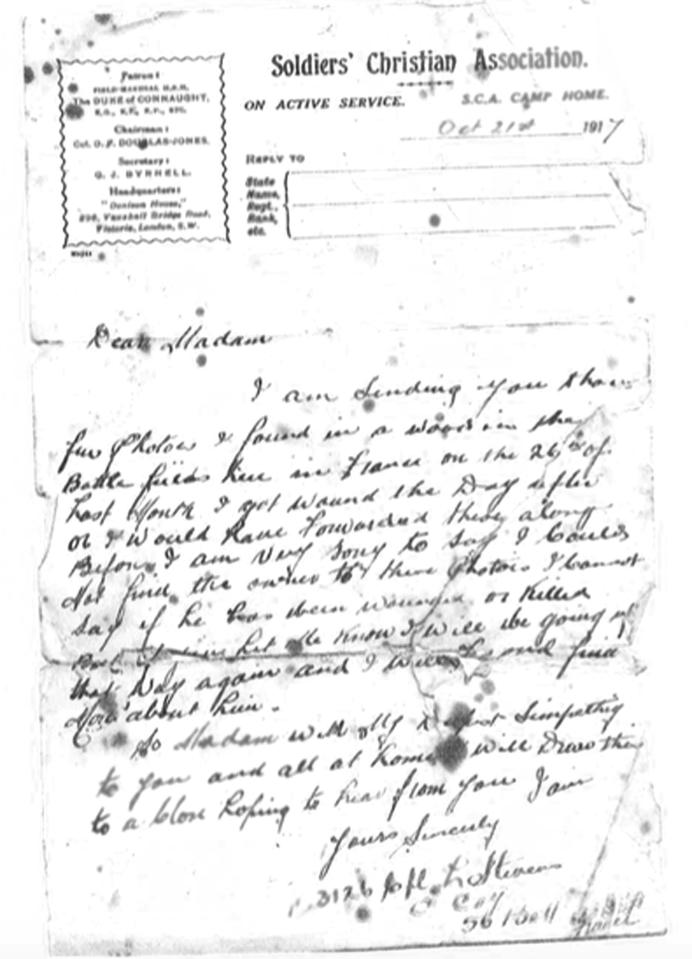 Soldiers' Christian Association.
ON ACTIVE SERVICE.
S.C.A. CAMP HOME.
Oct 21st 1917
Patron:
FIELD-MARSHAL H.R.H.
The DUKE of CONNAUGHT,
K.G., K.T., K.P., ETC.
Chairman:
Col. O. P. DOUGLAS-JONES.
Secretary:
G. J. BYRNELL.
Headquarters:
"Denison House,"
296, Vauxhall Bridge Road,
Victoria, London, S.W.
REPLY TO
State
Name,
Regt.,
Rank,
etc.
Dear Madam
I am Sending you
few Photos I found in a wood in the
Battle fields here in France on the 26th of
Last Month I got wound the Day after
or I would have Forwarded them along
Before I am very Sorry to Say I Could
Not find the owner to these Photos I cannot
Say if he has been wounded or Killed
But let Me Know I will be going up
that Way again and I will and find
More about him.
So Madam with My Simpathy
to you and all at home will Draw this
to a Close hoping to hear from you I am
Yours Sincerely
3126 Cpl L Stevens
C Coy
56 Batt
France